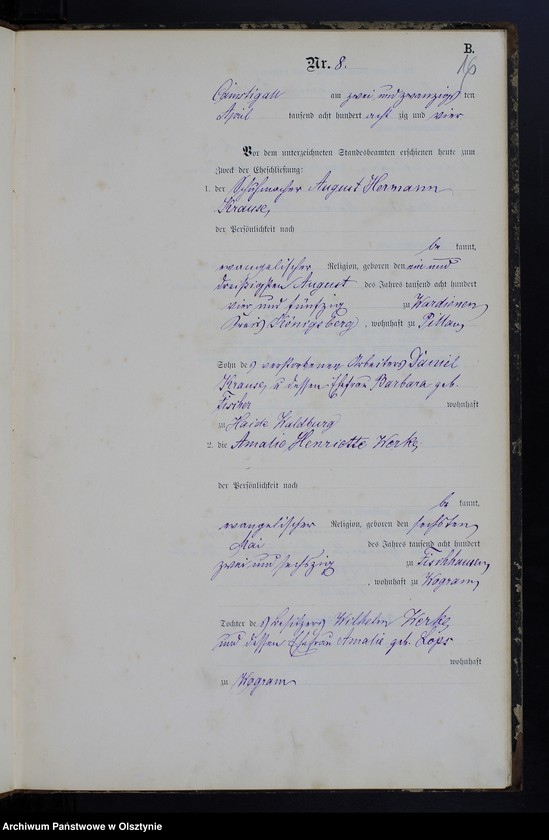 B.
16
Nr. 8.
Caimstigall am zwei und zwanzig ten
April tausend acht hundert acht zig und vier
Vor dem unterzeichneten Standesbeamten erschienen heute zum
Zweck der Eheschließung:
1. der Schuhmacher August Hermann
Krause,
der Persönlichkeit nach
be kannt,
evangelischer Religion, geboren den ein und
dreißigsten August des Jahres tausend acht hundert
vier und fünfzig zu Wardienen
Kreis Königsberg, wohnhaft zu Pillau,
Sohn des verstorbenen Arbeiters Daniel
Krause, u dessen Ehefrau Barbara geb.
Fischer wohnhaft
zu Haide Waldburg
2. die Amalie Henriette Werke,
der Persönlichkeit nach
be kannt,
evangelischer Religion, geboren den sechsten
Mai des Jahres tausend acht hundert
zwei und sechszig zu Fischhausen,
, wohnhaft zu Kogram,
Tochter des Besitzers Wilhelm Werke,
und dessen Ehefrau Amalie geb. Lops
wohnhaft
zu Kogram
Archiwum Państwowe w Olsztynie